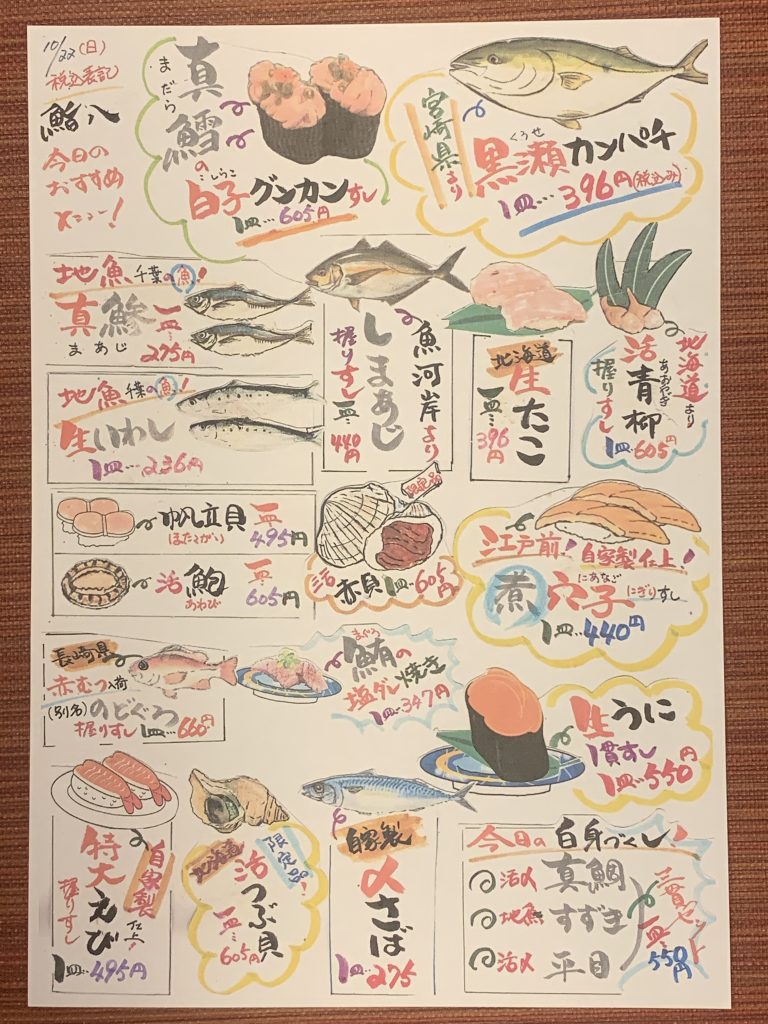 10/22(日)
税込表記
鮨八
今日の
おすすめ
メニュー!
まだら
真鱈の
しらこ
白子グンカンすし
1皿…605円
宮崎県より
くろせ
黒瀬カンパチ
1皿…396円(税込み)
地魚 千葉の魚!
真鯵 一皿…
まあじ 275円
地魚 千葉の魚!
生いわし
1皿…236円
魚河岸より
しまあじ
握りすし 一皿… 440円
北海道
生たこ
一皿…
396円
北海道より
活青柳
あおやぎ
握りすし 1皿…605円
帆立貝 一皿…
ほたてがい 495円
活鮑 一皿…
あわび 605円
限定品
活 赤貝 1皿…605円
江戸前!自家製仕上!
にあなご
煮穴子 にぎりすし
1皿…440円
長崎県
赤むつ入荷
(別名)のどぐろ
握りすし 1皿…660円
まぐろ
鮪の
塩ダレ焼き
1皿…347円
生うに
1貫すし
1皿…550円
自家製仕上!
特大えび
握りすし
1皿…495円
北海道
限定品!
活つぶ貝
一皿…
605円
自家製
〆さば
1皿…275
今日の白身づくし!
活〆 真鯛
地魚 すずき
活〆 平目
三貫セット
一皿…
550円